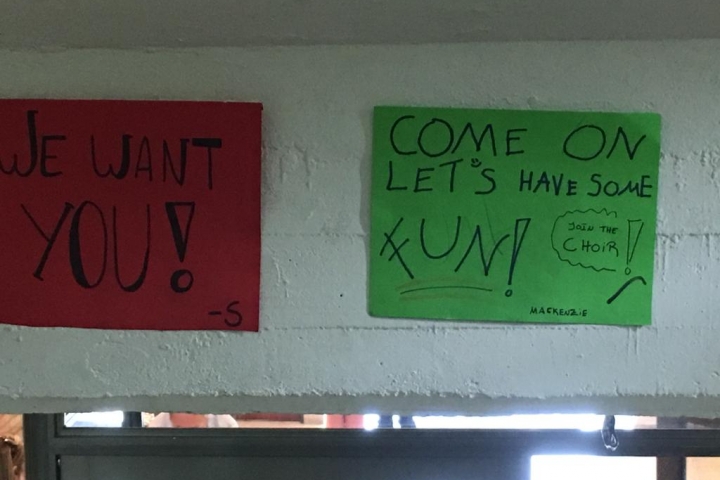 WE WANT
YOU!
-S
COME ON
LET'S HAVE SOME
FUN!
JOIN THE
CHOIR!
MACKENZIE